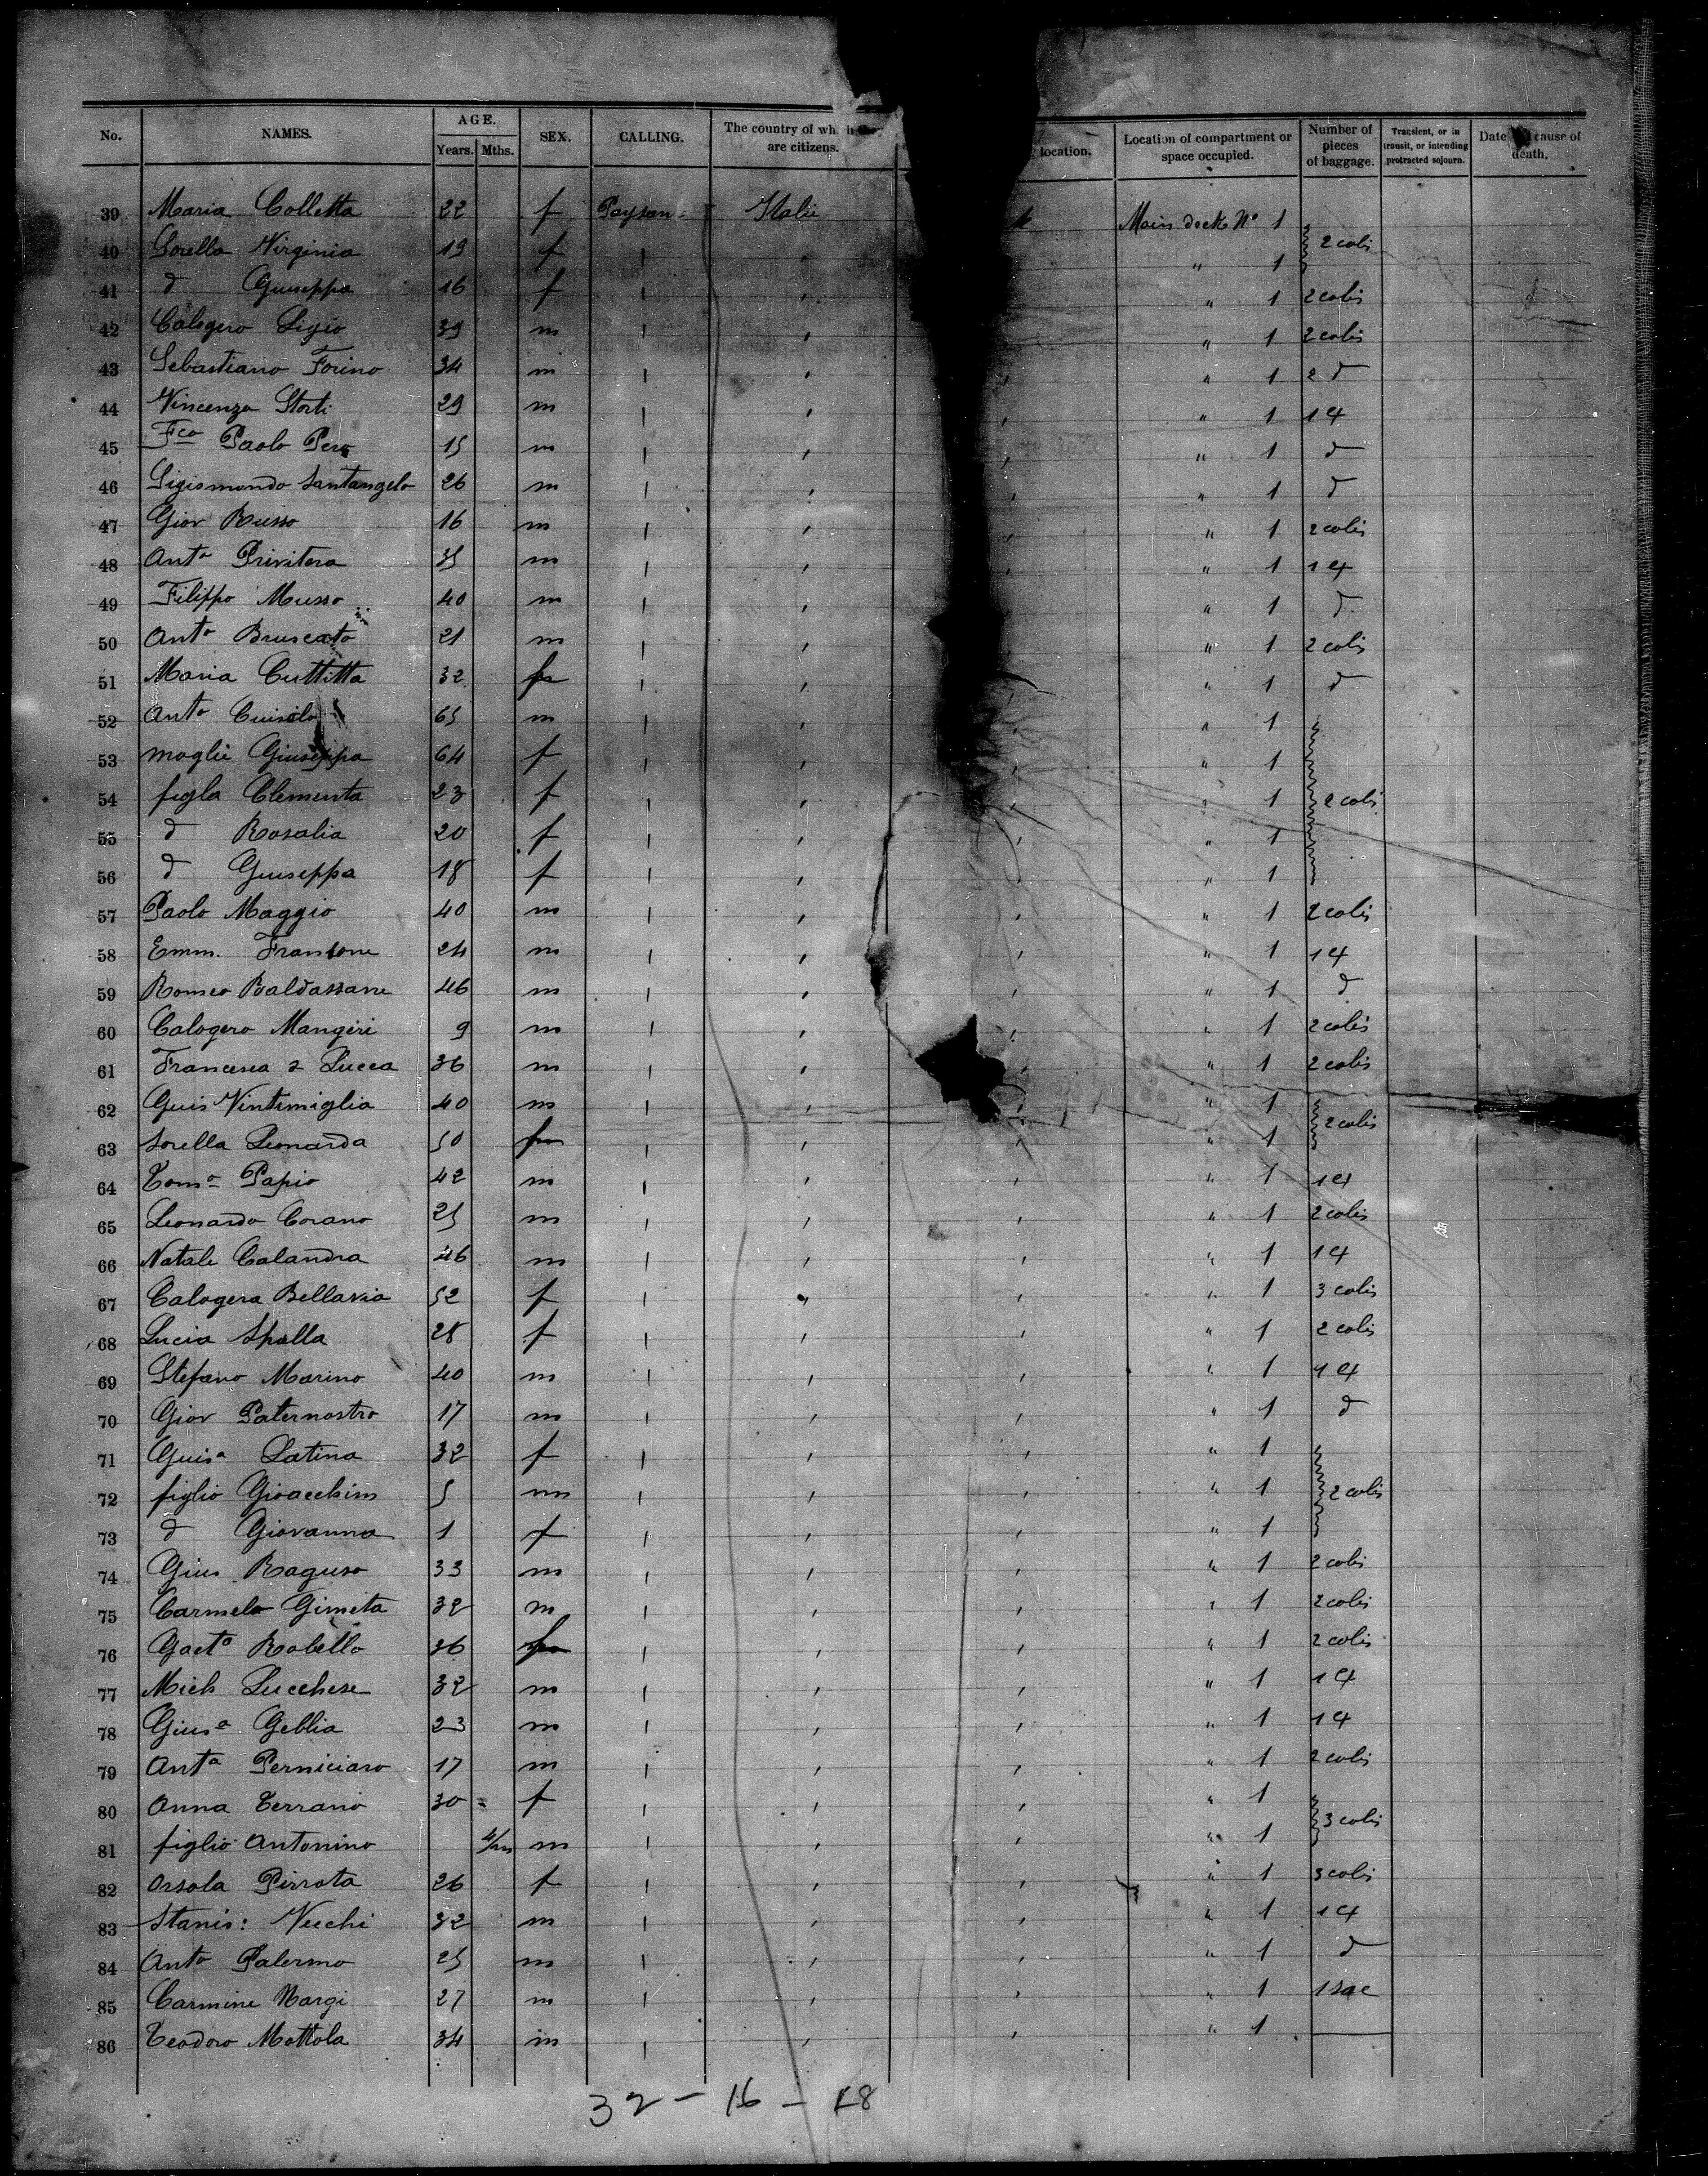 No. NAMES. AGE. Years. Mths. SEX. CALLING. The country of wh they are citizens. location. Location of compartment or space occupied. Number of pieces of baggage. Transient, or in transit, or intending protracted sojourn. Date cause of death.
39 Maria Colletta 22 f Paysan Italie Main deck No 1
40 Sorella Virginia 19 f " 1 2 colis
41 d Giuseppa 16 f " 1 2 colis
42 Calogero Ligio 39 m " 1 2 colis
43 Sebastiano Forino 34 m " 1 2 d
44 Vincenzo Storti 29 m " 1 1 4
45 Fco Paolo Pero 15 m " 1 d
46 Sigismondo Santangelo 26 m " 1 d
47 Giov Russo 16 m " 1 2 colis
48 Anto Privitera 35 m " 1 1 4
49 Filippo Musso 40 m " 1 d
50 Anto Bruscato 21 m " 1 2 colis
51 Maria Cuttitta 32 f " 1 d
52 Anto 65 m " 1
53 moglie Giuseppa 64 f " 1
54 figla Clementa 23 f " 1 2 colis
55 d Rosalia 20 f " 1
56 d Giuseppa 18 f " 1
57 Paolo Maggio 40 m " 1 2 colis
58 Emm. Fransone 24 m " 1 1 4
59 Romeo Baldassare 46 m " 1 d
60 Calogero Mangeri 9 m " 1 2 colis
61 Francesca d Lucca 36 m " 1 2 colis
62 Guis Vintimiglia 40 m " 1 2 colis
63 Sorella Leonarda 50 f " 1
64 Tomo Papio 42 m " 1 1 4
65 Leonardo Corano 25 m " 1 2 colis
66 Natale Calandra 46 m " 1 1 4
67 Calogera Bellavia 52 f " 1 3 colis
68 Lucia Spalla 28 f " 1 2 colis
69 Stefano Marino 40 m " 1 1 4
70 Giov Paternostro 17 m " 1 d
71 Guisa Latina 32 f " 1
72 figlio Gioacchim 5 m " 1 2 colis
73 d Giovanna 1 f " 1
74 Gius Raguso 33 m " 1 2 colis
75 Carmelo Gimeta 32 m " 1 2 colis
76 Gaeto Robello 36 " 1 2 colis
77 Mich Lucchese 32 m " 1 1 4
78 Giusa Geblia 23 m " 1 1 4
79 Anta Perniciaro 17 m " 1 2 colis
80 Anna Terrano 30 f " 1 3 colis
81 figlio Antonino 4/m m " 1
82 Orsola Pirrota 26 f " 1 3 colis
83 Stanis: Vecchi 32 m " 1 1 4
84 Anto Palermo 25 m " 1 d
85 Carmine Nargi 27 m " 1 1 sac
86 Teodoro Mottola 34 m " 1
32 - 16 - 18